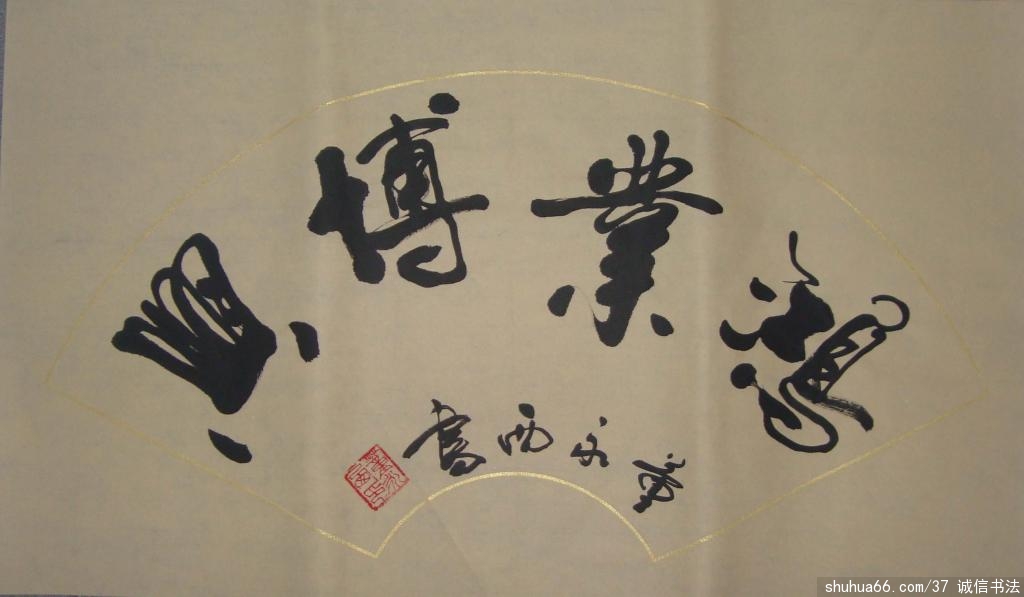 鴻業博興
董永西書
shuhua66.com/37 诚信书法